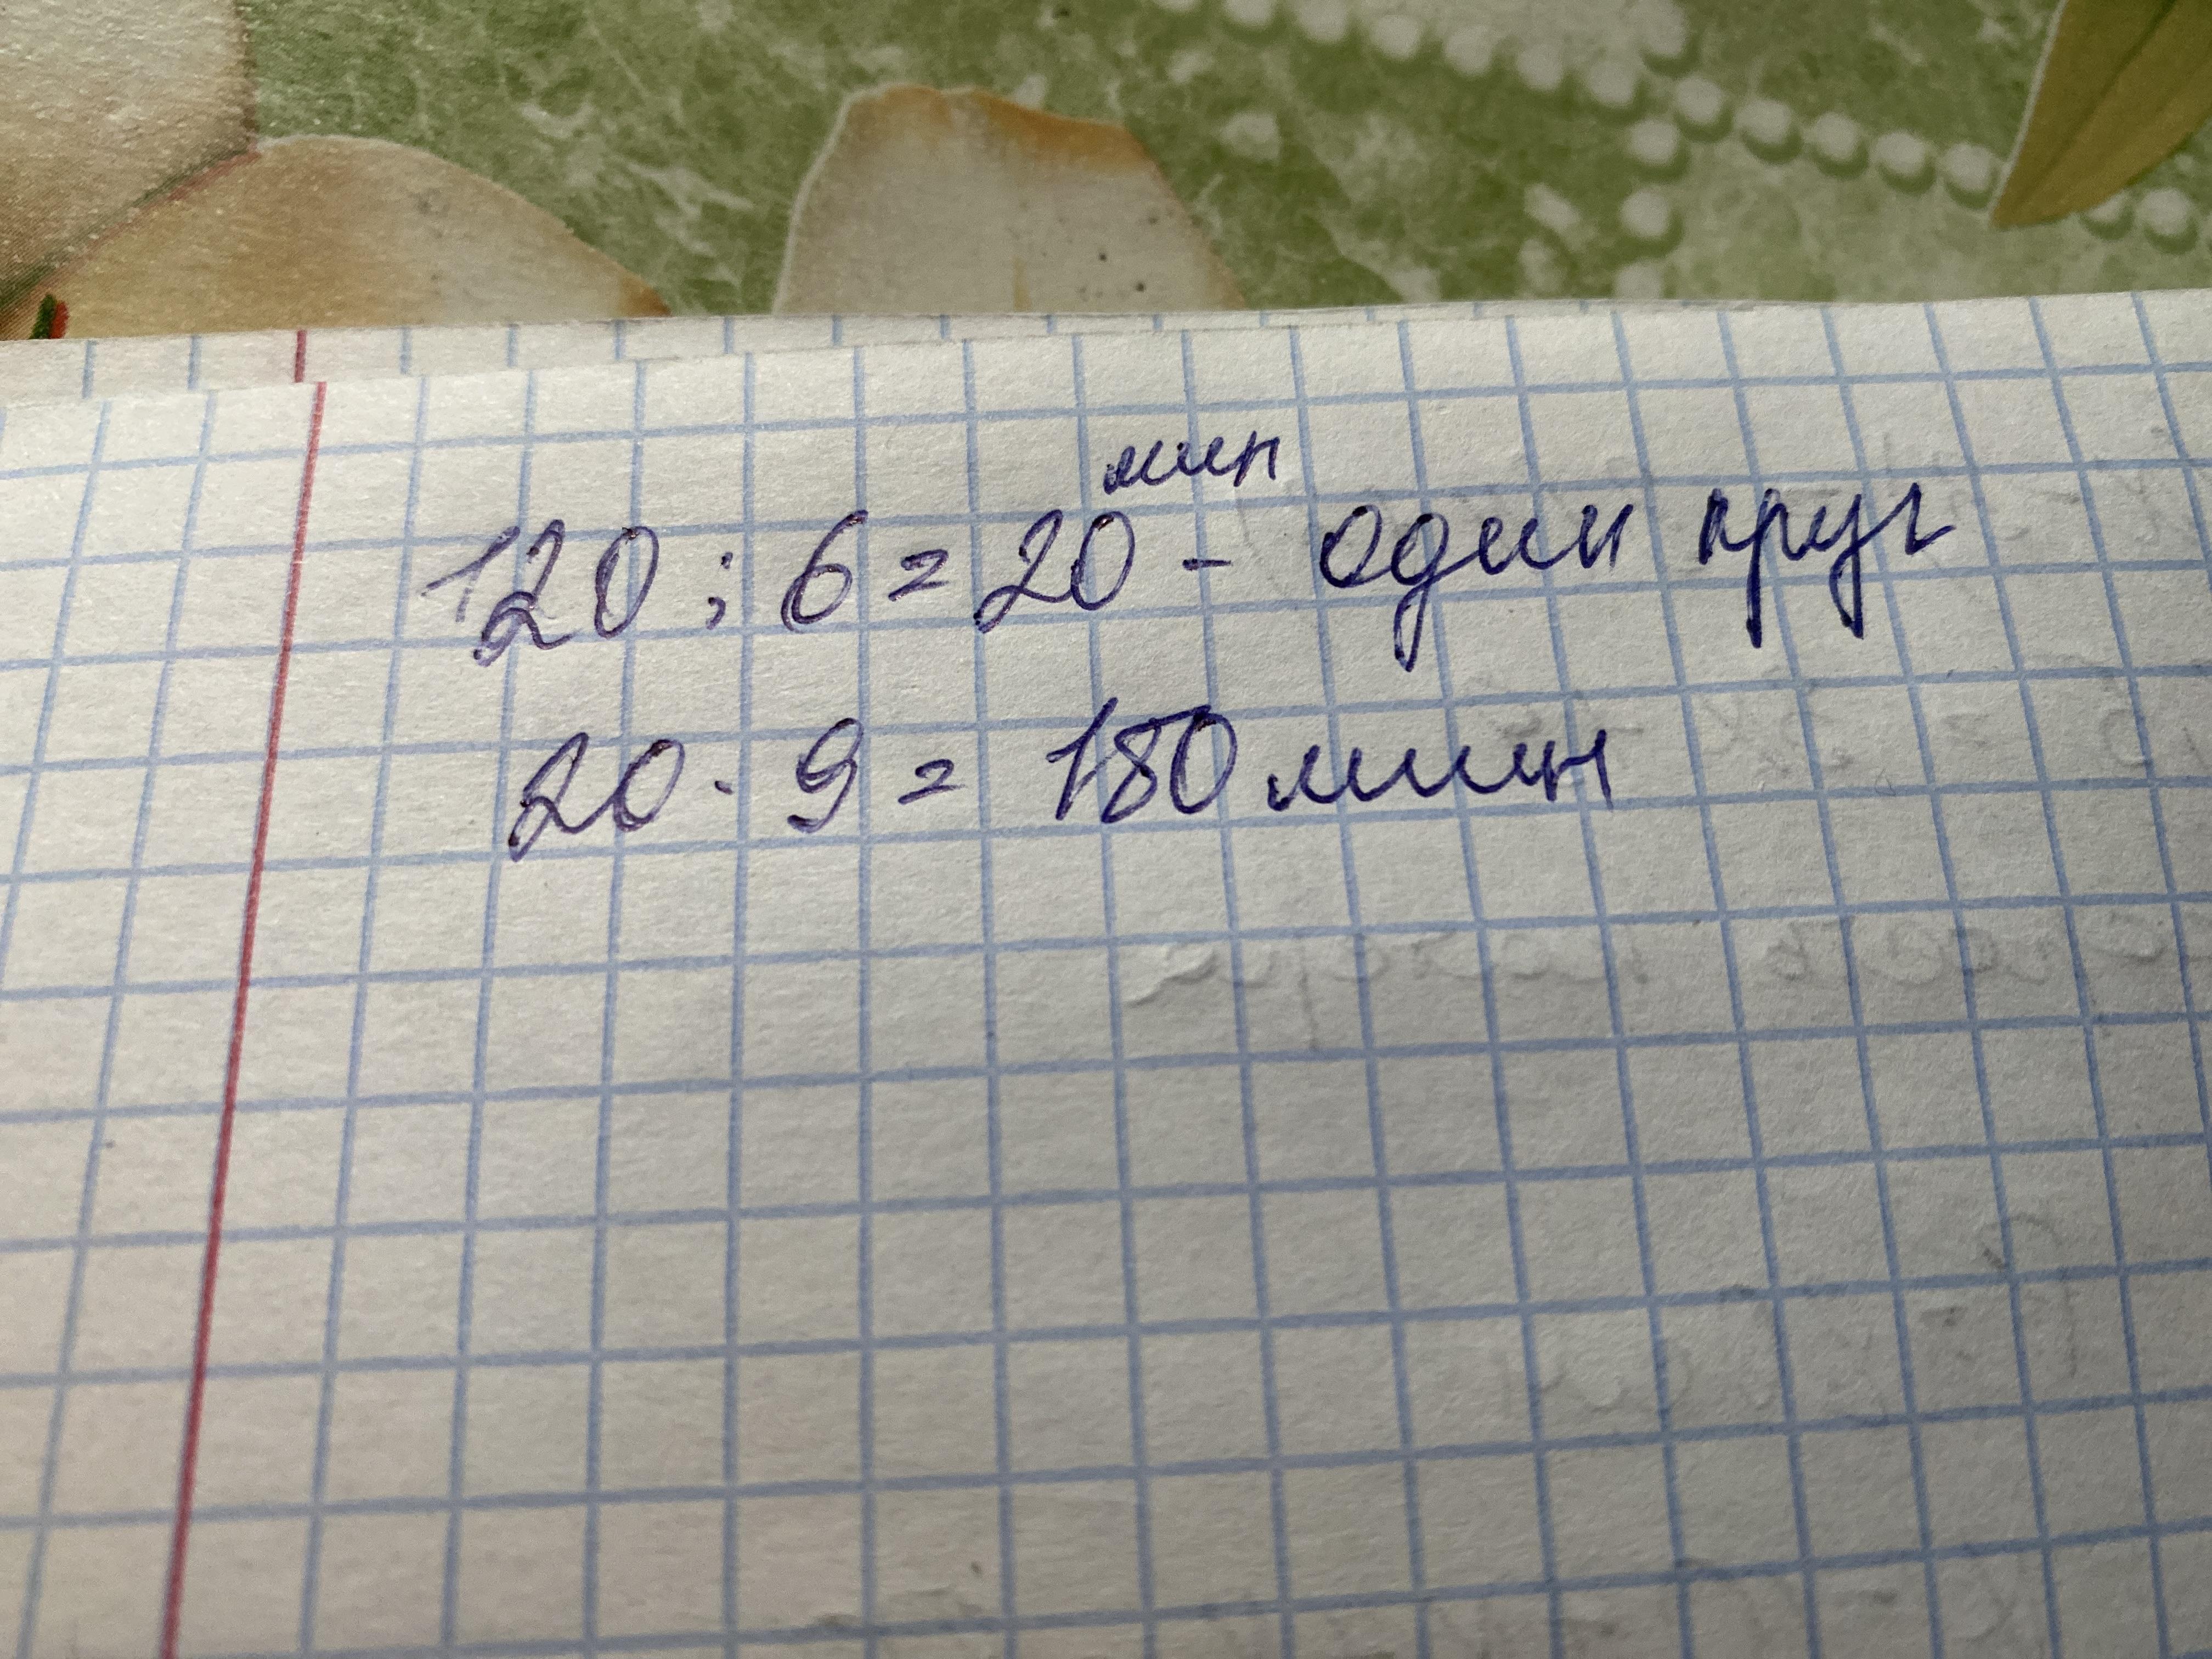 120 : 6 = 20 мин - один круг
20 · 9 = 180 мин